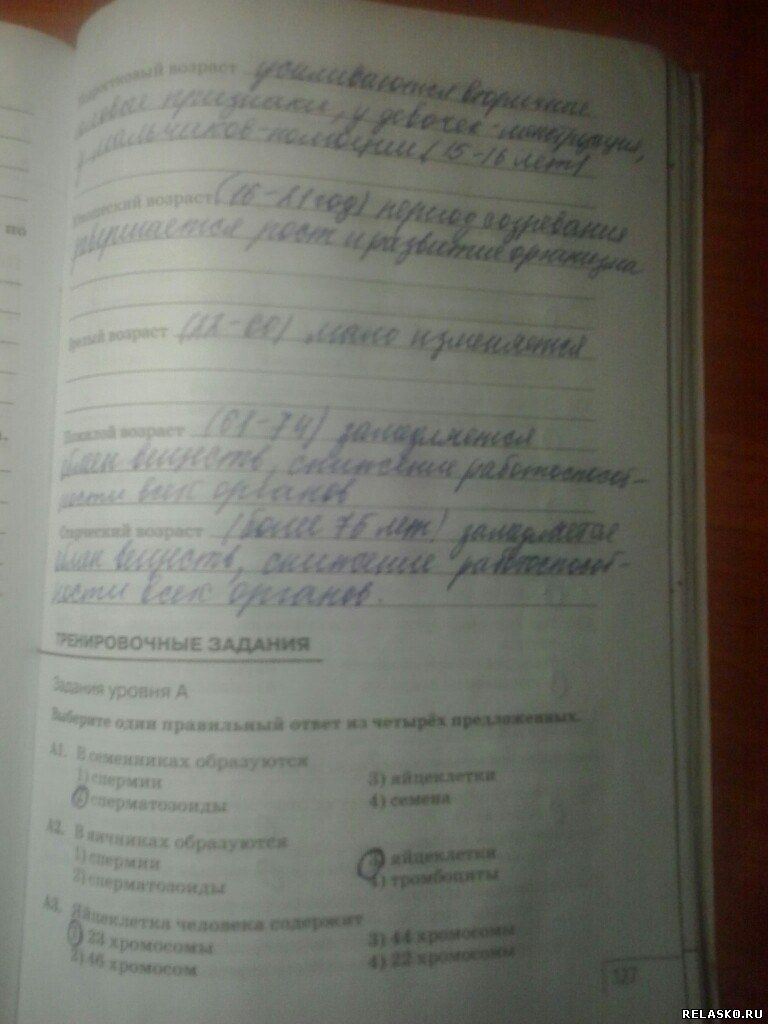 Подростковый возраст усиливаются вторичные
половые признаки, у девочек-менструация,
у мальчиков-поллюции (15-16 лет)
Юношеский возраст (16-21 год) период созревания
завершается рост и развитие организма
Зрелый возраст (22-60) мало изменяется
Пожилой возраст (61-74) замедляется
обмен веществ, снижение работоспособ-
ности всех органов
Старческий возраст (более 75 лет) замедляется
обмен веществ, снижение работоспособ-
ности всех органов.
по
ТРЕНИРОВОЧНЫЕ ЗАДАНИЯ
Задания уровня А
Выберите один правильный ответ из четырёх предложенных.
А1. В семенниках образуются
1) спермии 3) яйцеклетки
2) сперматозоиды 4) семена
А2. В яичниках образуются
1) спермии 3) яйцеклетки
2) сперматозоиды 4) тромбоциты
А3. Яйцеклетка человека содержит
1) 23 хромосомы 3) 44 хромосомы
2) 46 хромосом 4) 22 хромосомы
127
RELASKO.RU